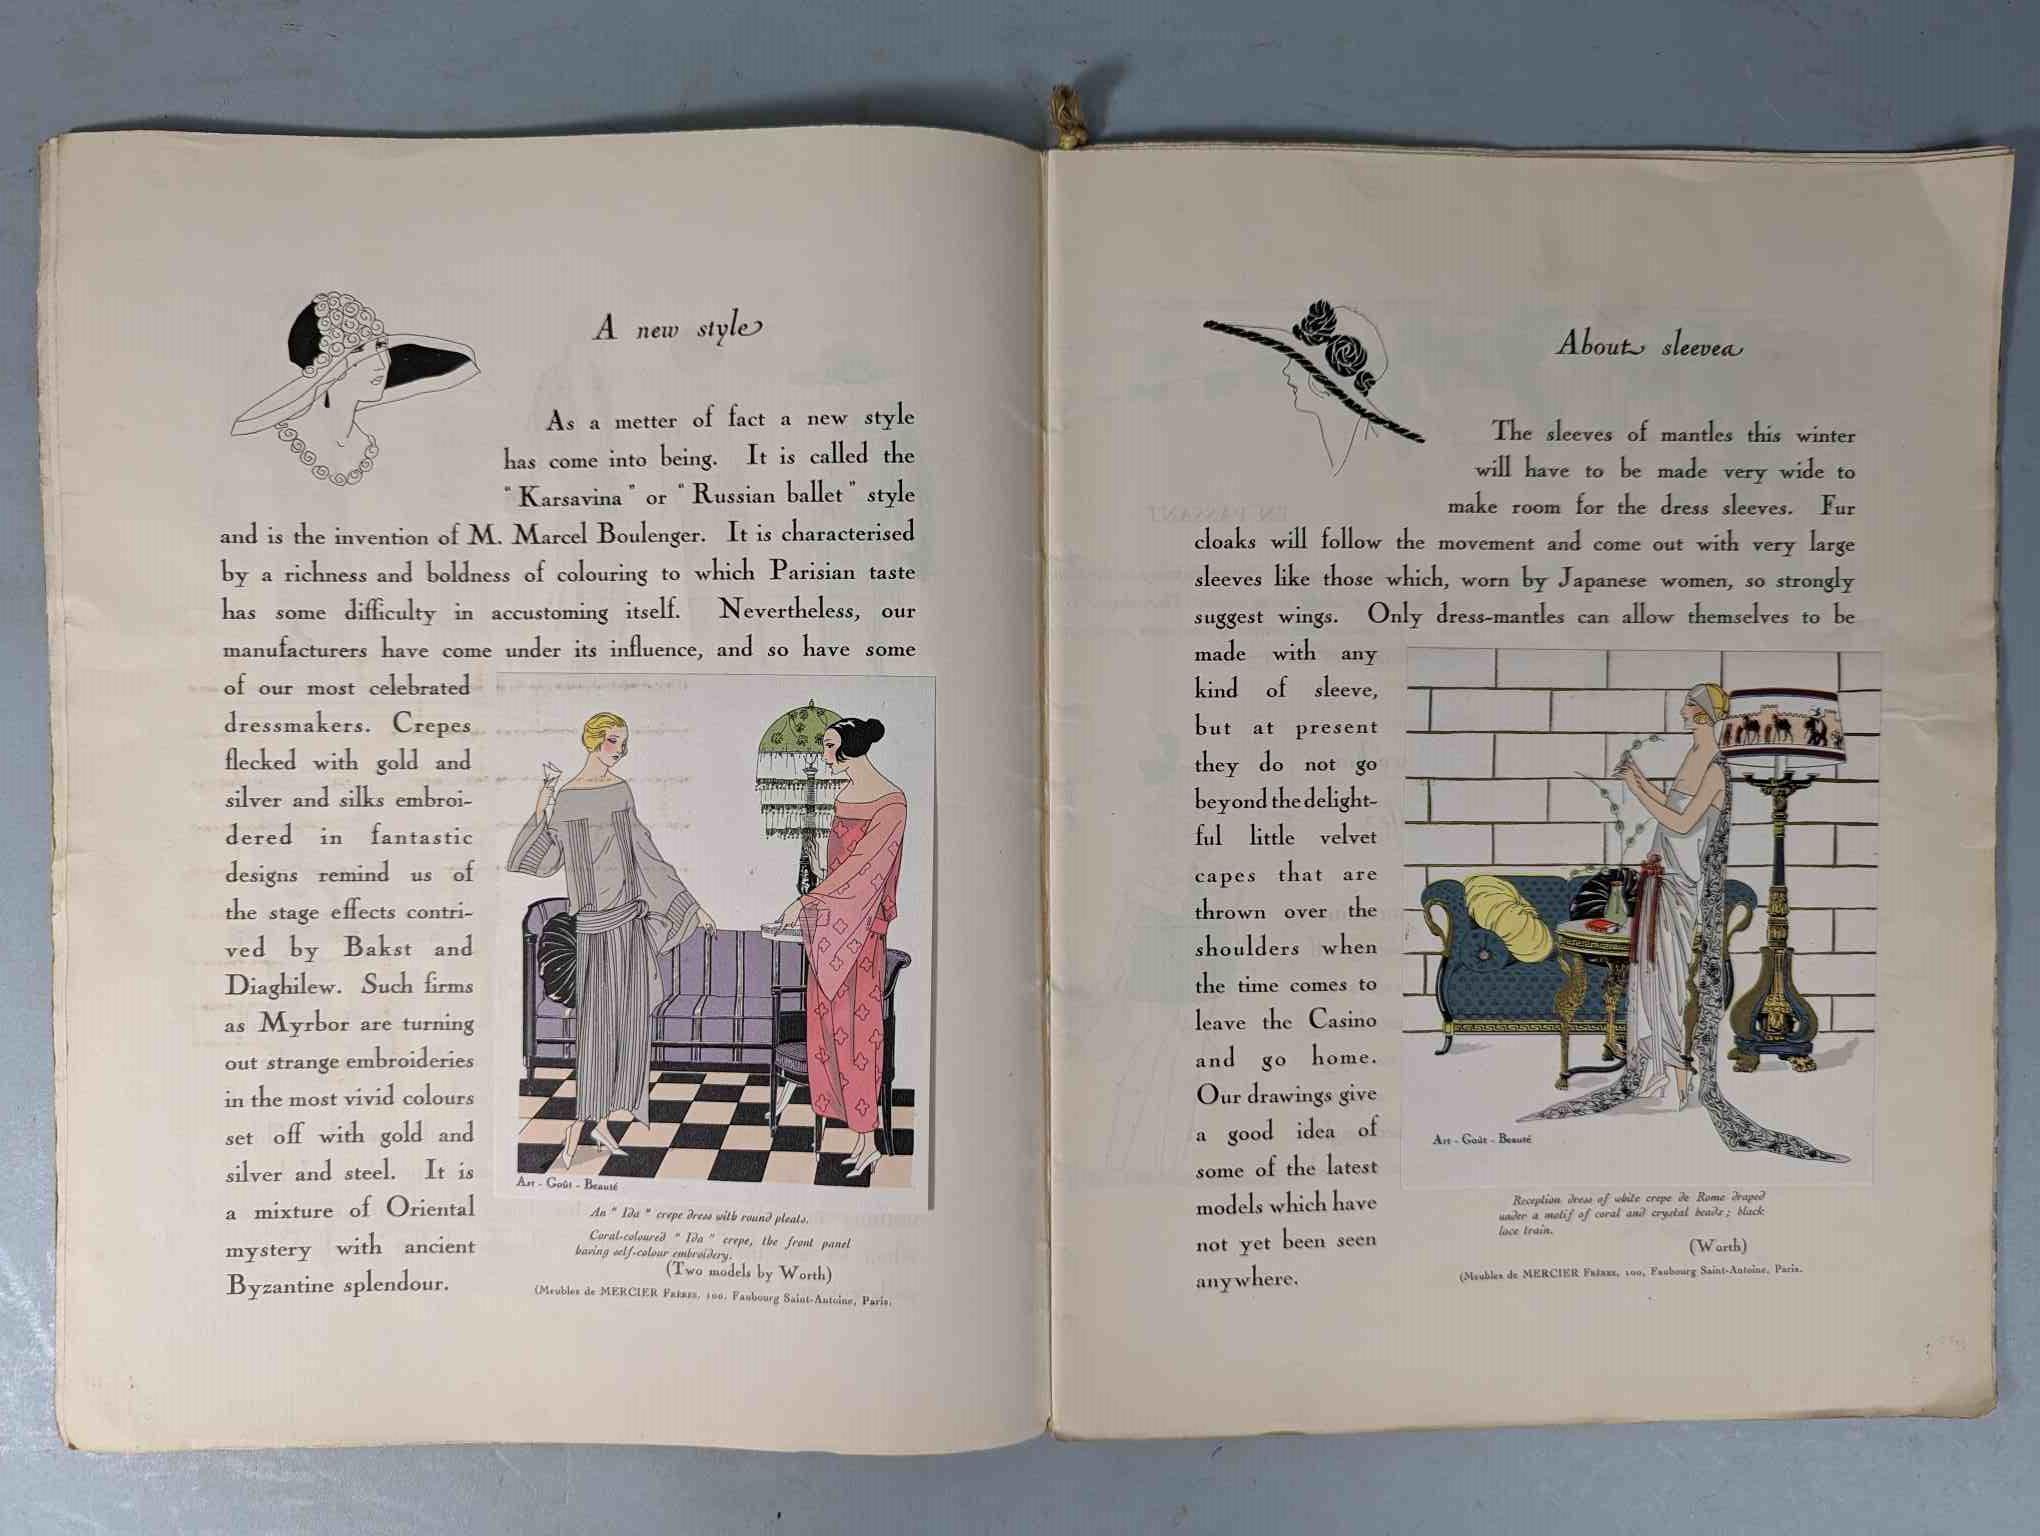 A new style
As a metter of fact a new style
has come into being. It is called the
"Karsavina" or "Russian ballet" style
and is the invention of M. Marcel Boulenger. It is characterised
by a richness and boldness of colouring to which Parisian taste
has some difficulty in accustoming itself. Nevertheless, our
manufacturers have come under its influence, and so have some
of our most celebrated
dressmakers. Crepes
flecked with gold and
silver and silks embroi-
dered in fantastic
designs remind us of
the stage effects contri-
ved by Bakst and
Diaghilew. Such firms
as Myrbor are turning
out strange embroideries
in the most vivid colours
set off with gold and
silver and steel. It is
a mixture of Oriental
mystery with ancient
Byzantine splendour.
Art - Goût - Beauté
An "Ida" crepe dress with round pleats.
Coral-coloured "Ida" crepe, the front panel
having self-colour embroidery.
(Two models by Worth)
(Meubles de MERCIER FRÈRES, 100, Faubourg Saint-Antoine, Paris.
About sleeves
The sleeves of mantles this winter
will have to be made very wide to
make room for the dress sleeves. Fur
cloaks will follow the movement and come out with very large
sleeves like those which, worn by Japanese women, so strongly
suggest wings. Only dress-mantles can allow themselves to be
made with any
kind of sleeve,
but at present
they do not go
beyond the delight-
ful little velvet
capes that are
thrown over the
shoulders when
the time comes to
leave the Casino
and go home.
Our drawings give
a good idea of
some of the latest
models which have
not yet been seen
anywhere.
Art - Goût - Beauté
Reception dress of white crepe de Rome draped
under a motif of coral and crystal beads; black
lace train.
(Worth)
(Meubles de MERCIER FRÈRES, 100, Faubourg Saint-Antoine, Paris.